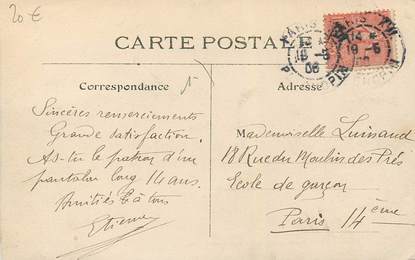 20 €
CARTE POSTALE
Correspondance
Adresse
Sincères remerciements
Grande satisfaction.
As-tu le patron d'un
pantalon long 14 ans.
Amitiés à tous
Etienne
Mademoiselle Luinaud
18 Rue du Moulin des Prés
Ecole de garçon
Paris 14ème
PARIS
14
19 - 5
06
14
19 - 5